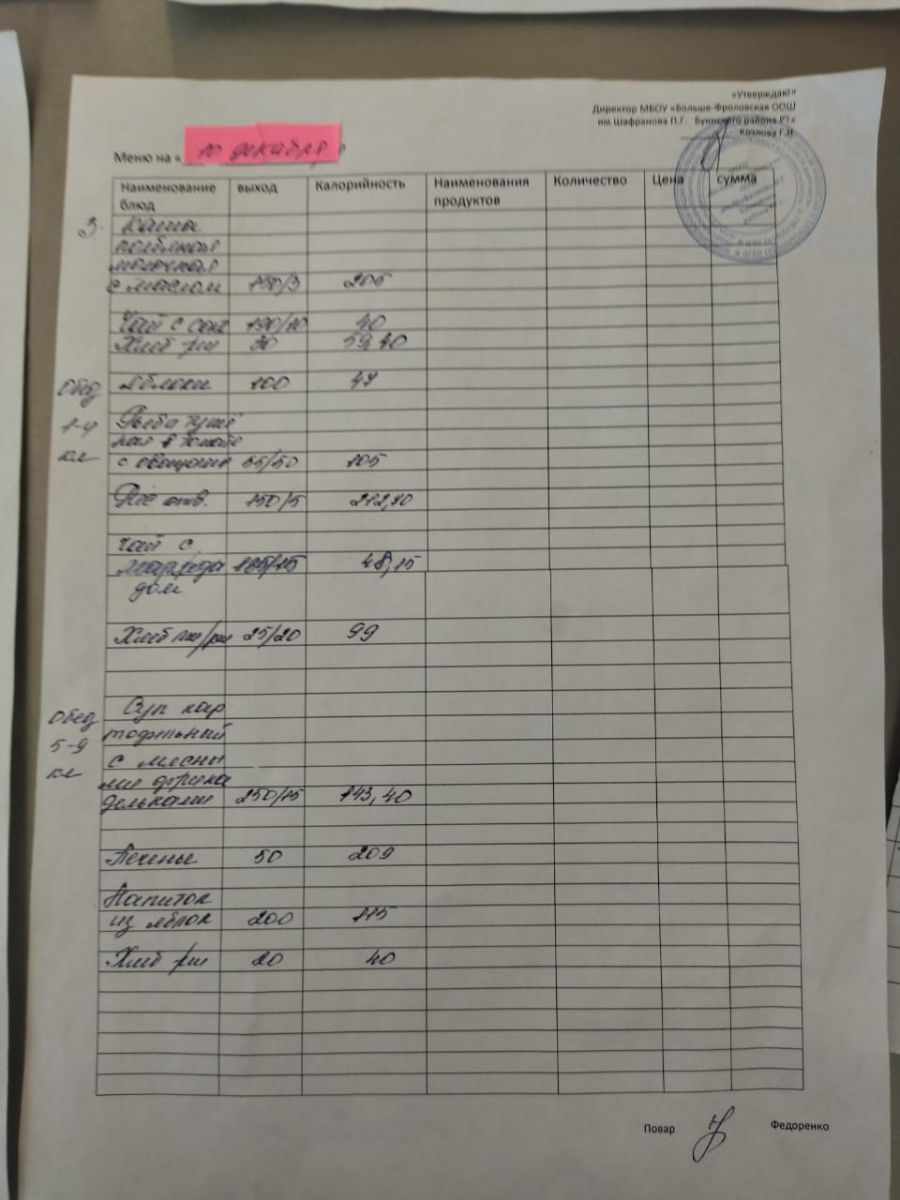 «Утверждаю»
Директор МБОУ «Больше-Фроловская ООШ
им Шафранова П.Г. Буинского района РТ»
Козлова Г.Н
Меню на « 10 декабря
Наименование блюд выход Калорийность Наименования продуктов Количество Цена сумма
З. Каша
молочная
с маслом 150/3 205
Чай с сах 190/10 40
Хлеб рж 30 59,40
Обед Яблоки 100 47
1-4 Рыба туше
кл ная в томате
с овощами 55/50 105
Рис отв. 150/5 212,10
Чай с
185/15 48,15
дом
Хлеб пш/рж 25/20 99
Обед Суп кар
5-9 тофельный
кл с мясны
ми фрика
дельками 250/15 143,40
Печенье 50 209
Напиток
из яблок 200 115
Хлеб рж 20 40
Повар Федоренко